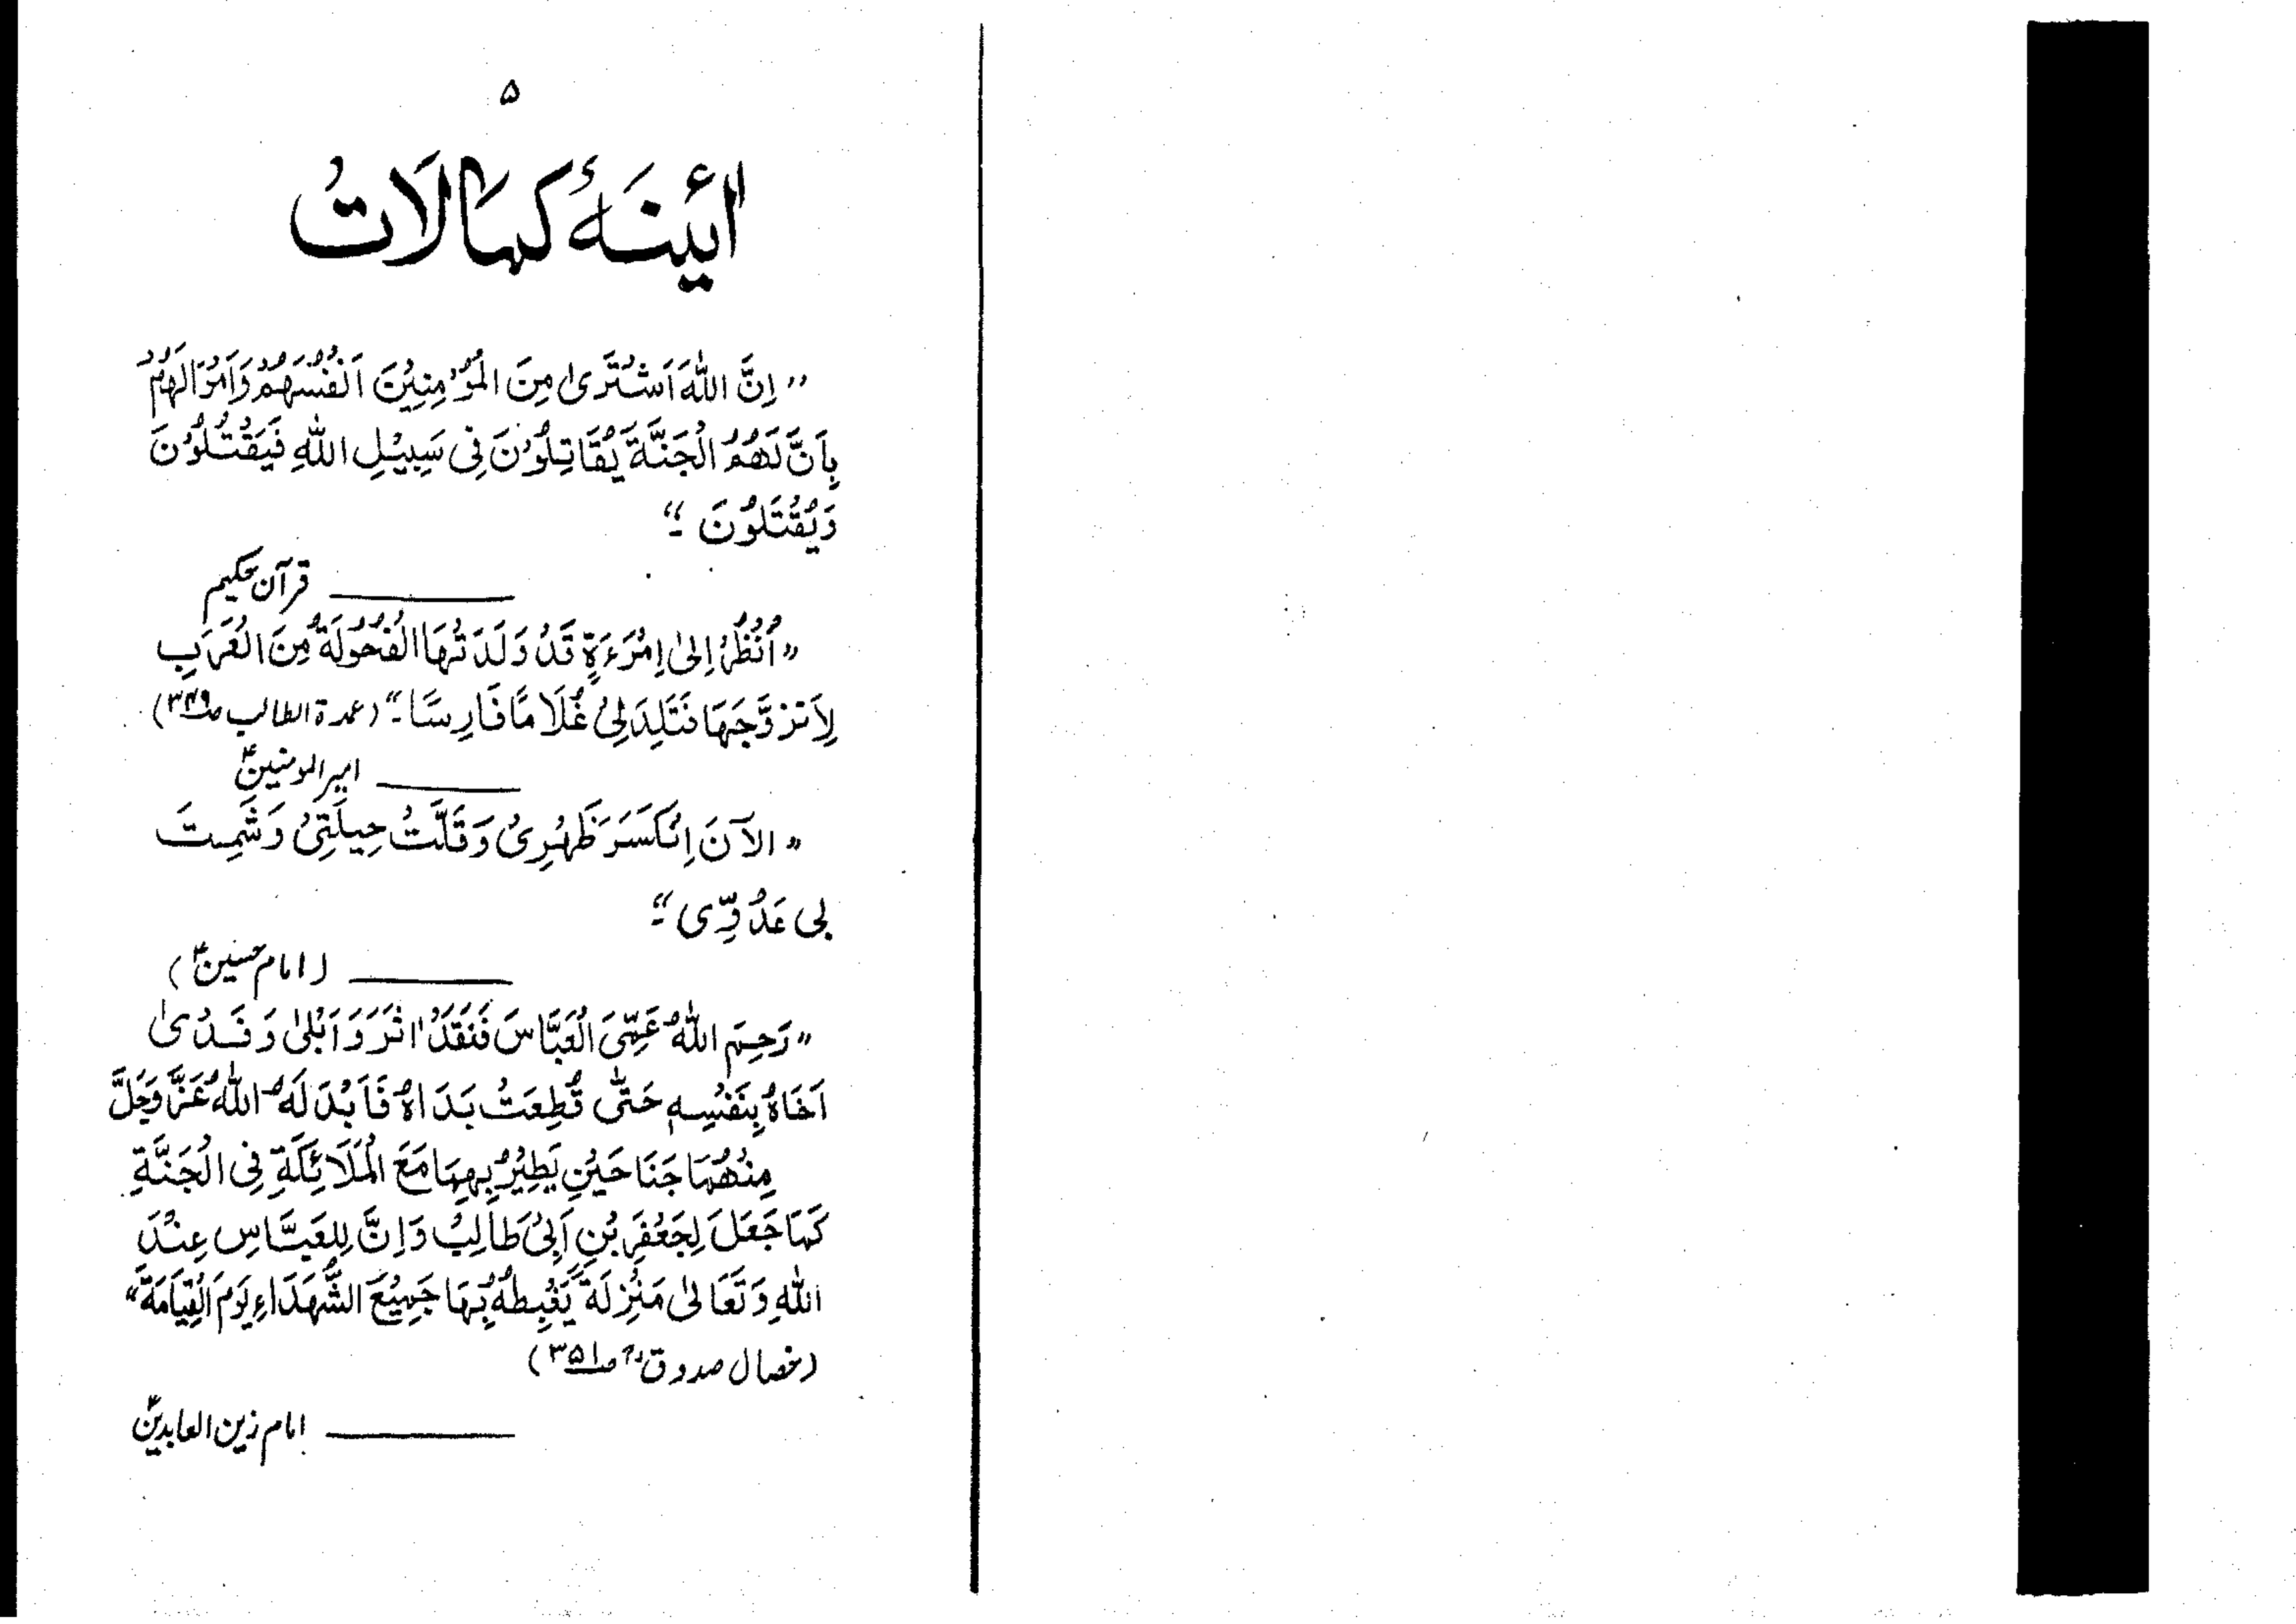 ۵
آئینَہٴ کمالَاتُ
”اِنَّ اللّٰهَ اَشْتَریٰ مِنَ الْمُؤْمِنِیْنَ اَنْفُسَهُمْ وَاَمْوَالَهُمْ
بِاَنَّ لَهُمُ الْجَنَّةَ یُقَاتِلُوْنَ فِی سَبِیْلِ اللّٰهِ فَیَقْتُلُوْنَ
وَیُقْتَلُوْنَ ۔“
قرآن حکیم
”اُنْظُرْ اِلیٰ اِمْرَءَةٍ قَدْ وَلَدَتْهَا الْفُحُوْلَةُ مِنَ الْعَرَبِ
لِاَتزَوَّجَهَا فَتَلِدَ لِیْ غُلَامًا فَارِسًا ۔“ (عمدۃ الطالب صـ۳۴۹)
امیر المومنینؑ
”الآنَ اِنْکَسَرَ ظَهْرِیْ وَقَلَّتْ حِیلَتِیْ وَشَمِتَ
بی عَدُوِّی ۔“
(امام حسینؑ)
”رَحِمَ اللّٰهُ عَمِّیَ الْعَبَّاسَ فَلَقَدْ اٰثَرَ وَاَبْلیٰ وَفَدیٰ
اَخَاهُ بِنَفْسِهٖ حَتّٰی قُطِعَتْ یَدَاهُ فَاَبْدَلَهُ اللّٰهُ عَزَّ وَجَلَّ
مِنْهُمَا جَنَاحَیْنِ یَطِیْرُ بِهِمَا مَعَ الْمَلَائِکَةِ فِی الْجَنَّةِ
کَمَا جَعَلَ لِجَعْفَرَ بْنِ اَبِیْ طَالِبْ وَاِنَّ لِلْعَبَّاسِ عِنْدَ
اللّٰهِ وَتَعَالیٰ مَنْزِلَةً یَغْبِطُهُ بِهَا جَمِیْعَ الشُّهَدَاءِ یَوْمَ الْقِیَامَةْ“
(خصال صدوقؒ صـ۳۵۱)
امام زین العابدینؑ